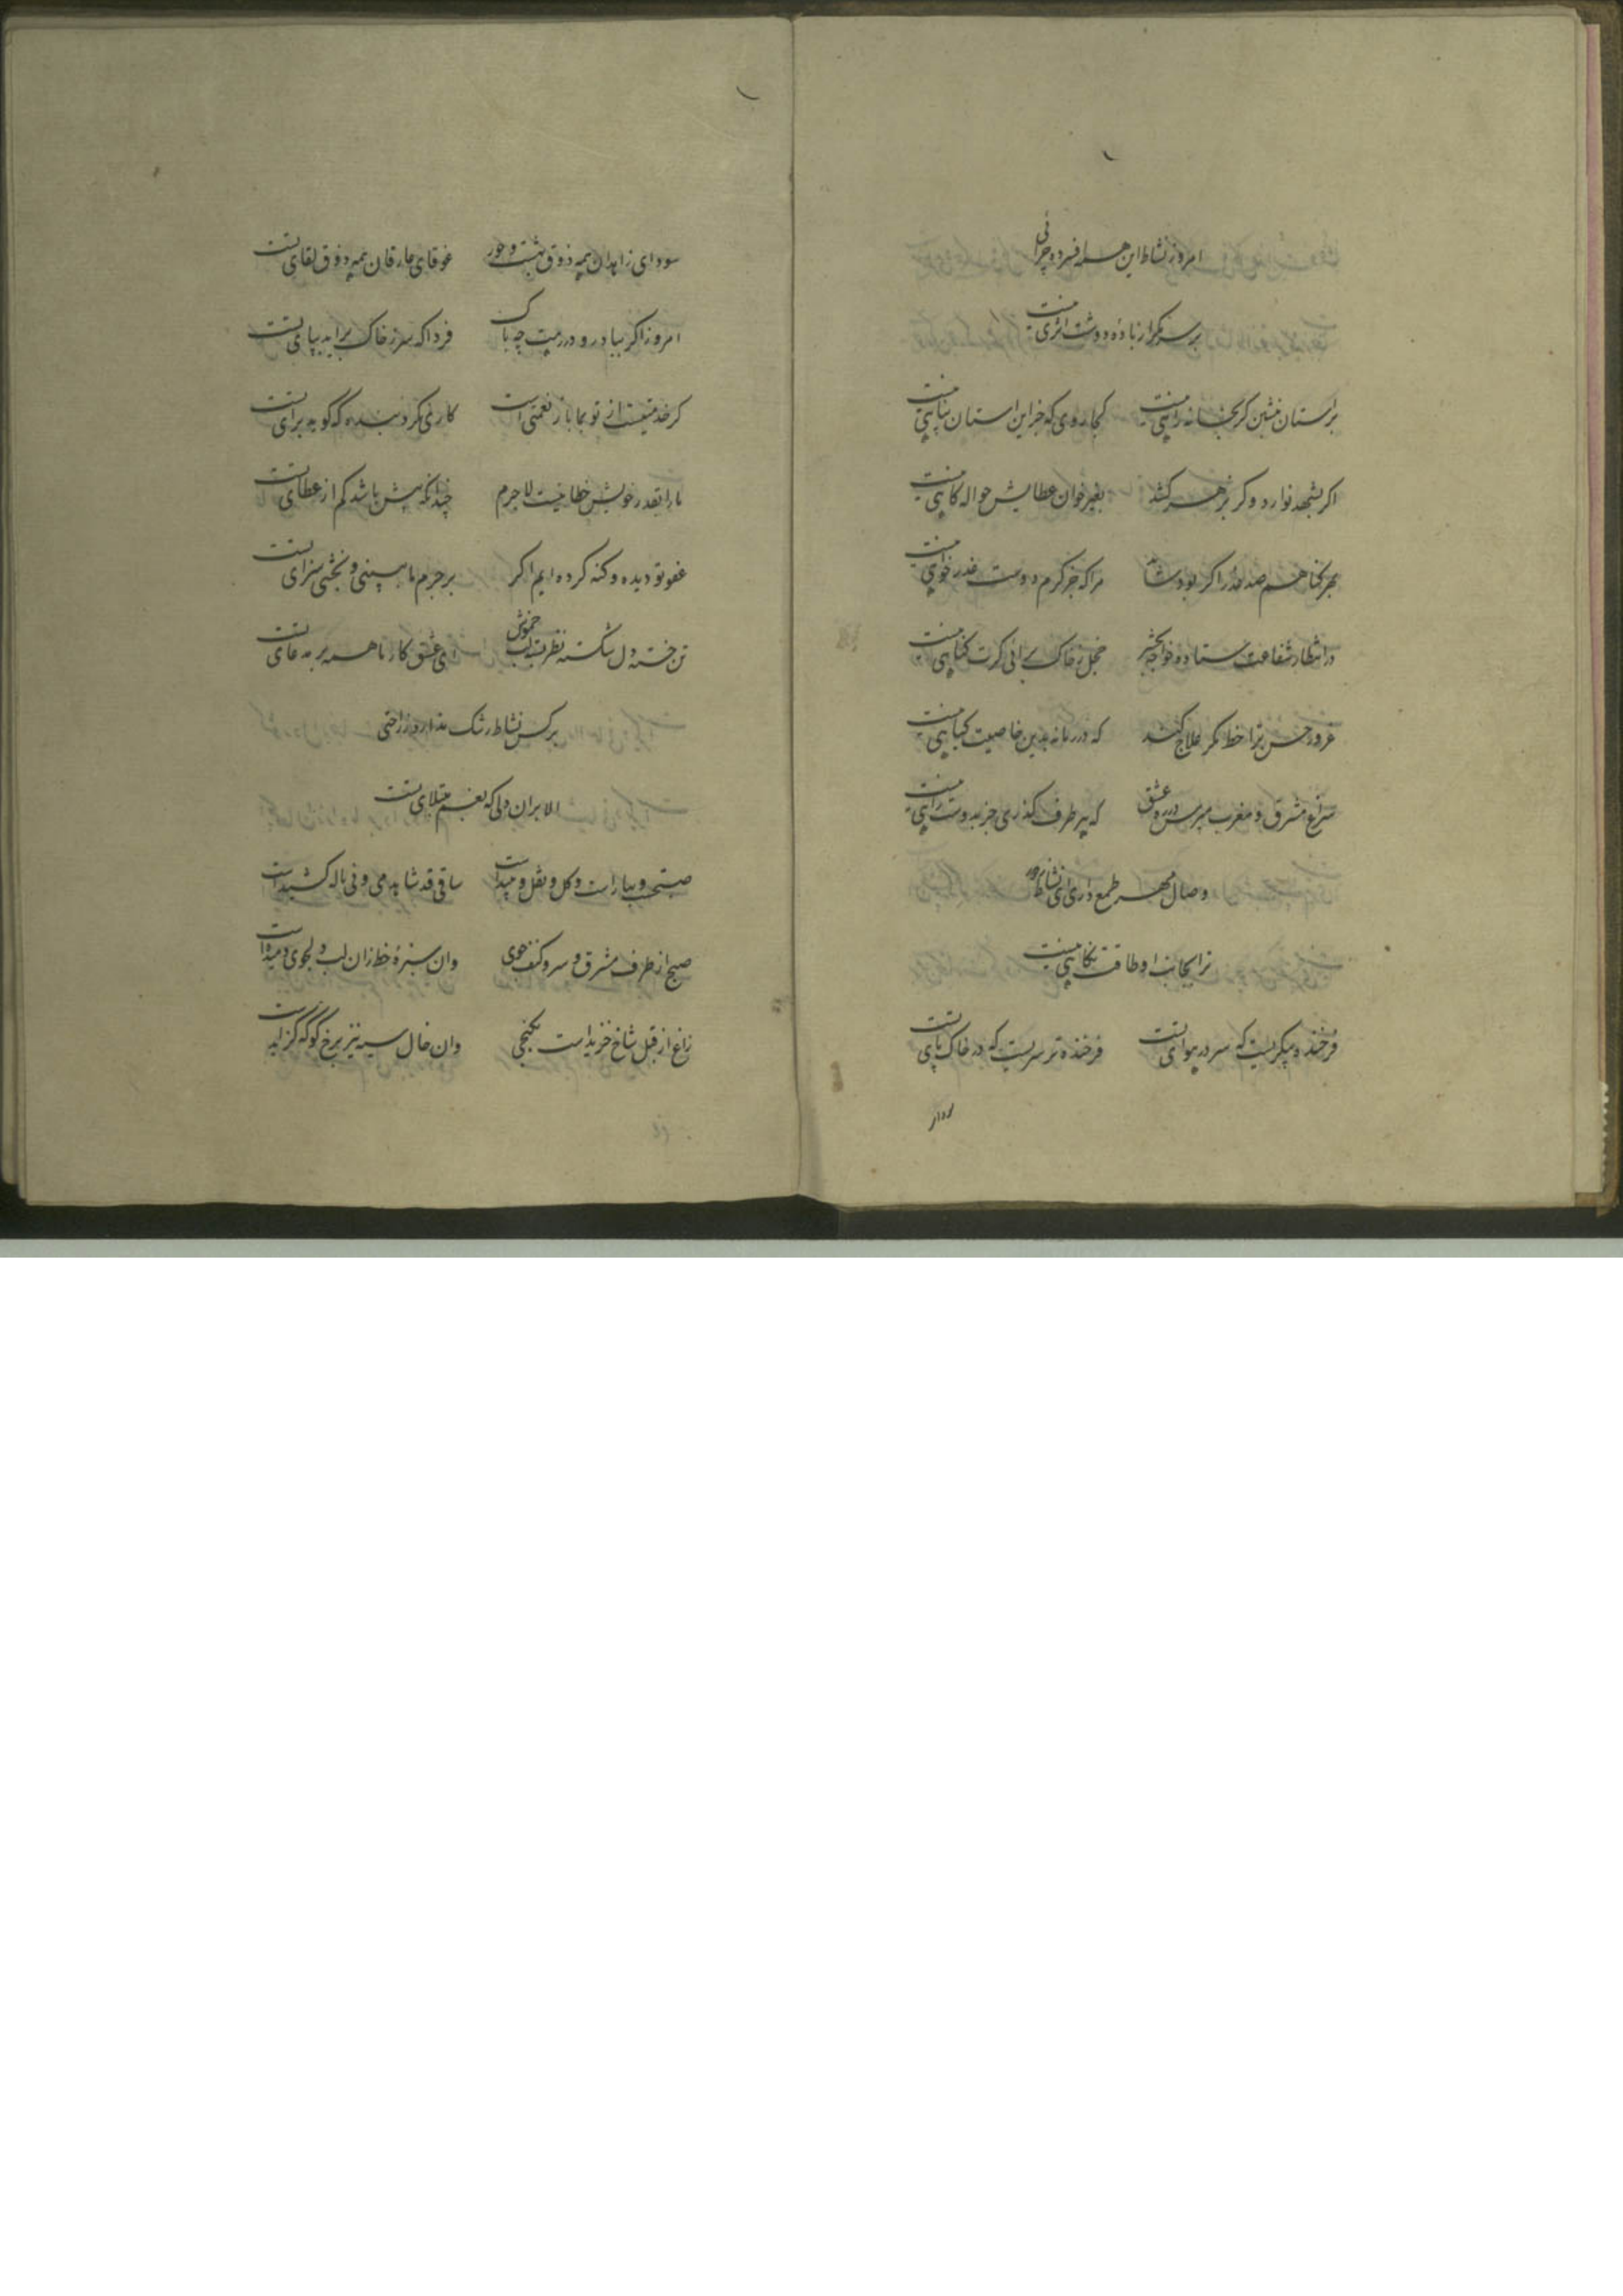 امروز نشاط این همه افسرده چرائی
برسر مگر از باده دوشت اثری نیست
بر آستان منشین گر بخانه راهی نیست
کجا روی که جز این آستان پناهی نیست
اگر بشهد نوازد وگر بزهر کشد
بغیر خوان عطایش حواله گاهی نیست
بهر گناهم صد عذر اگر بود شاید
مرا که جز کرم دوست عذر خواهی نیست
در انتظار شفاعت ستاده خواجه بحشر
خجل ز خاک برآئی گرت گناهی نیست
غرور حسن ترا خط مگر علاج کند
که در زمانه بدین خاصیت گیاهی نیست
سراغ مشرق و مغرب مپرس در ره عشق
که بهر طرف گذری جز بدوست راهی نیست
وصال مهر طمع داری ای نشاط و تو را
ترا بجانب او طاقت نگاهی نیست
فرخنده پیکریست که سر در هوای تست
فرخنده تر سریست که در خاک پای تست
سودای زاهدان همه ذوق بهشت و حور
غوغای عارفان همه ذوق لقای تست
امروز اگر بیاد رود در رهت چه باک
فردا که سر ز خاک براید بپای تست
گر خدمتیست از تو بما باز نعمتی است
کاری نکرد بنده که گوید برای تست
ما را بقدر خویش خطائیست لاجرم
چندانکه بیش باشد کم از عطای تست
عفو تو دیده و گنه کرده ایم اگر
بر جرم ما ببینی و بخشی سزای تست
تن خسته دل شکسته نظر بسته لب خموش
ای عشق کار ما همه بر مدعای تست
بر کس نشاط رشک ندارد ز راحتی
الا بران دلی که بغم مبتلای تست
صبحت و بهار است و گل و نقل و نبید است
ساقی قد شاهد می و نی ناله کشید است
صبح از طرف مشرق و سرو کنف جوی
وان سبزه خط زان لب دلجوی دمید است
زاغ از قبل شاخ خزید است بکنجی
وان خال سیه نیز برخ گوشه گزید است